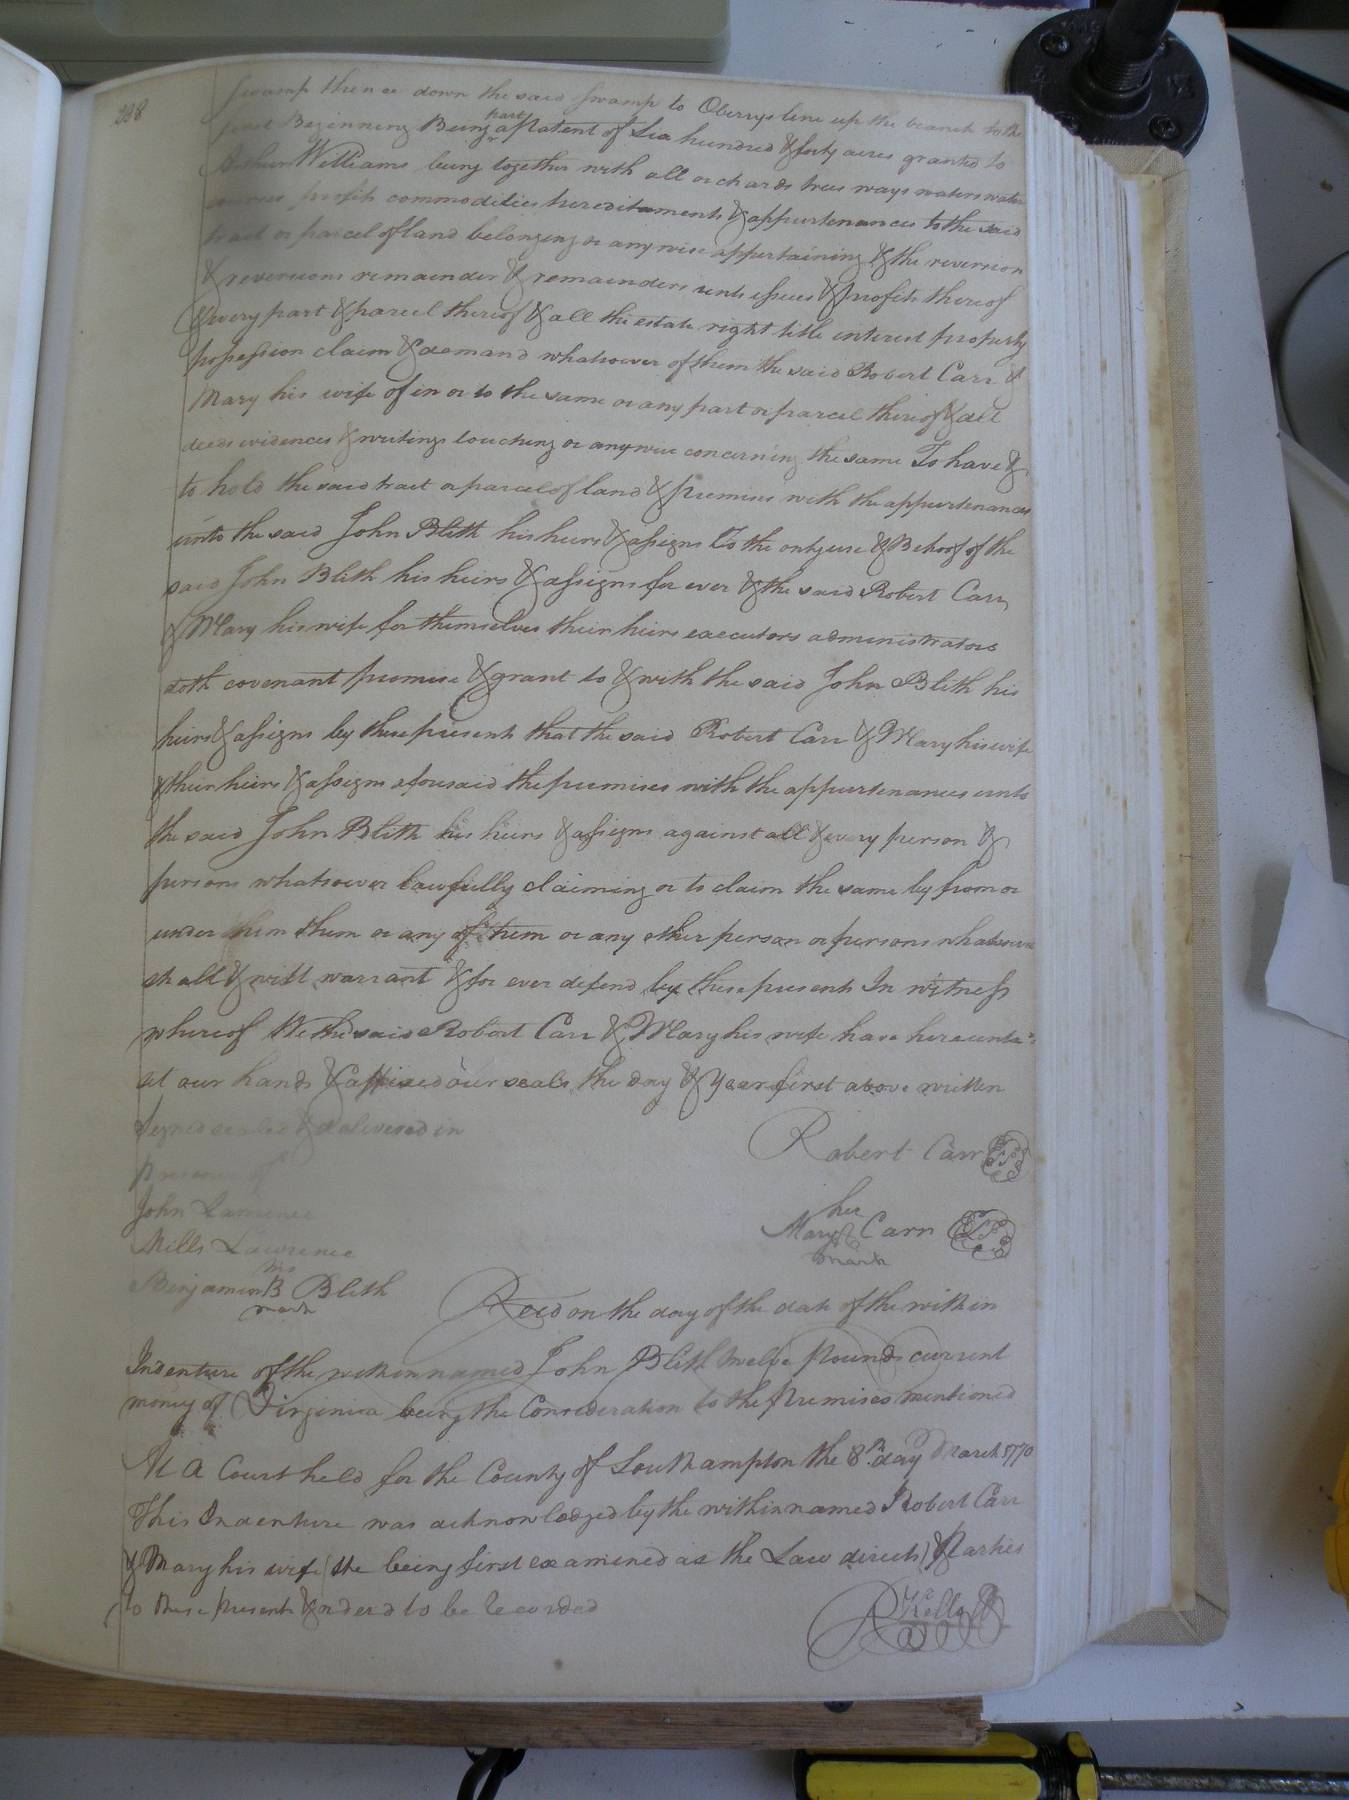 228
Swamp thence down the said Swamp to Oberrys line up the branch to the
first Beginning Being a part Patent of Six hundred & forty acres granted to
Arthur Williams being together with all orchards trees ways waters water
courses profits commodities hereditaments & appurtenances to the said
tract or parcel of land belonging or any wise appertaining & the reversion
& reversions remainder & remainders rents issues & profits thereof
& every part & parcel thereof & all the estate right title interest property
possession claim & demand whatsoever of them the said Robert Carr &
Mary his wife of in or to the same or any part or parcel thereof & all
deeds evidences & writings touching or anywise concerning the same To have &
to hold the said tract or parcel of land & premises with the appurtenances
unto the said John Blith his heirs & assigns To the only use & Behoof of the
said John Blith his heirs & assigns for ever & the said Robert Carr
& Mary his wife for themselves their heirs executors administrators
doth covenant promise & grant to & with the said John Blith his
heirs & assigns by these presents that the said Robert Carr & Mary his wife
& their heirs & assigns aforesaid the premises with the appurtenances unto
the said John Blith his heirs & assigns against all & every person &
persons whatsoever lawfully claiming or to claim the same by from or
under them or any of them or any other person or persons whatsoever
shall & will warrant & for ever defend by these presents In witness
whereof We the said Robert Carr & Mary his wife have hereunto
set our hands & affixed our seals the day & year first above written
Signed sealed & delivered in
presence of
Robert Carr LS
John Lawrence
her
Mary Carr LS
mark
Mills Lawrence
his
Benjamin B Blith
mark
Recd on the day of the date of the within
Indenture of the within named John Blith twelve Pounds current
money of Virginia being the Consideration to the Premises mentioned
At a Court held for the County of Southampton the 8th day March 1770
This Indenture was acknowledged by the within named Robert Carr
& Mary his wife (she being first examined as the Law directs) & Parties
to these presents & ordered to be Recorded